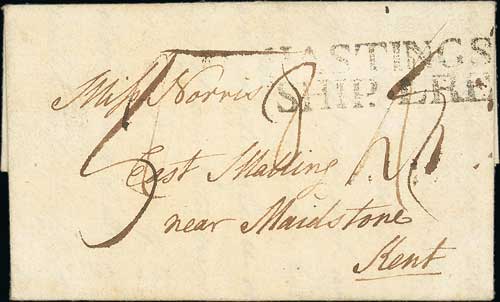 HASTINGS
SHIP LRE
Miss Norris
East Malling
near Maidstone
Kent